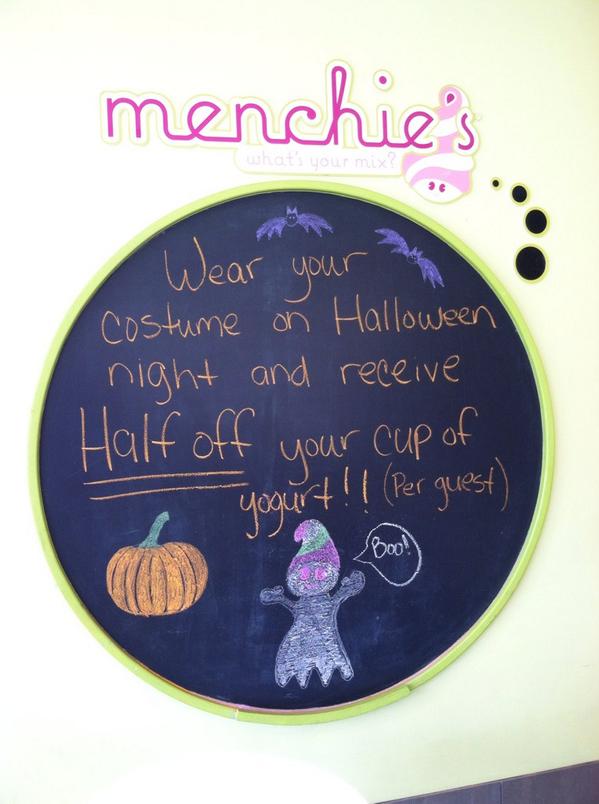 menchie's
what's your mix?
Wear your
costume on Halloween
night and receive
Half off your cup of
yogurt!! (Per guest)
Boo!